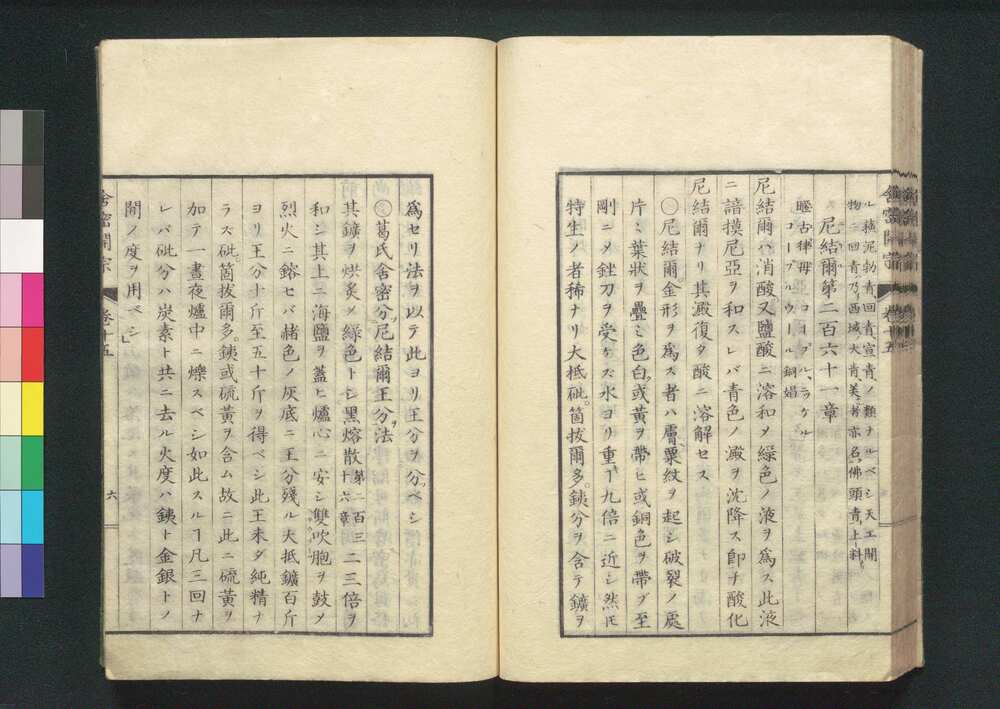 ル穗泥勃青回青宣青ノ類ナルベシ天工開
物ニ回青ハ乃西域大青美者亦名佛頭青上料
尼結爾第二百六十一章
尼結爾ハ消酸又鹽酸ニ溶和メ綠色ノ液ヲ為ス此液
ニ諳摸尼亞ヲ和スレバ青色ノ澱ヲ沈降ス卽チ酸化
尼結爾ナリ其澱復タ酸ニ溶解セス
尼結爾金形ヲ爲ス者ハ膚粟紋ヲ起シ破裂ノ處
片ミ葉狀ヲ疊ミ色白或黃ヲ帶ヒ或銅色ヲ帶ブ至
剛ニメ銼刀ヲ受ケズ水ヨリ重キヿ九倍ニ近シ然𪜈
特生ノ者稀ナリ大抵砒箇拔爾多銕分ヲ含テ鑛ヲ
舎密開宗 卷十五
爲セリ法ヲ以テ此ヨリ王分ヲ分ツベシ
葛氏舎密分尼結爾王分法
其鑛ヲ烘炙メ綠色トシ黑熔散第二百三十六章二三倍ヲ
和シ其上ニ海鹽ヲ蓋ヒ爐心ニ安シ雙吹胞ヲ鼓メ
烈火ニ鎔セバ赭色ノ灰底ニ王分殘ル大抵鑛百斤
ヨリ王分十斤至五十斤ヲ得ベシ此王未ダ純精ナ
ラス砒箇拔爾多銕或硫黃ヲ含ム故ニ此ニ硫黃ヲ
加テ一晝夜爐中ニ爍スベシ如此スルヿ凡三回ナ
レバ砒分ハ炭素ト共ニ去ル火度ハ銕ト金銀トノ
閒ノ度ヲ用ベシ
舎密開宗 卷十五 六